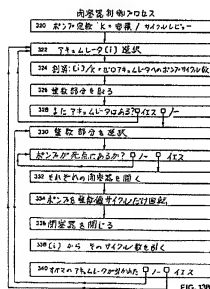 閉塞器制御プロセス
320 ポンプ定数 K = 容積 / サイクルレビュー
322 アキュムレータ (i) 選択
324 割算: (i) / K = ゼロアキュムレータへのポンプサイクル数
326 整数部分を取る
328 またアキュムレータはある? イエス ノー
330 整数部分を選択
ポンプが死点にあるか? ノー イエス
332 それぞれの閉塞器を開く
334 ポンプを整数値サイクルだけ回転
336 閉塞器を閉じる
338 (i) から そのサイクル数を引く
340 すべてのアキュムレータが引かれた ノー イエス
FIG. 13B